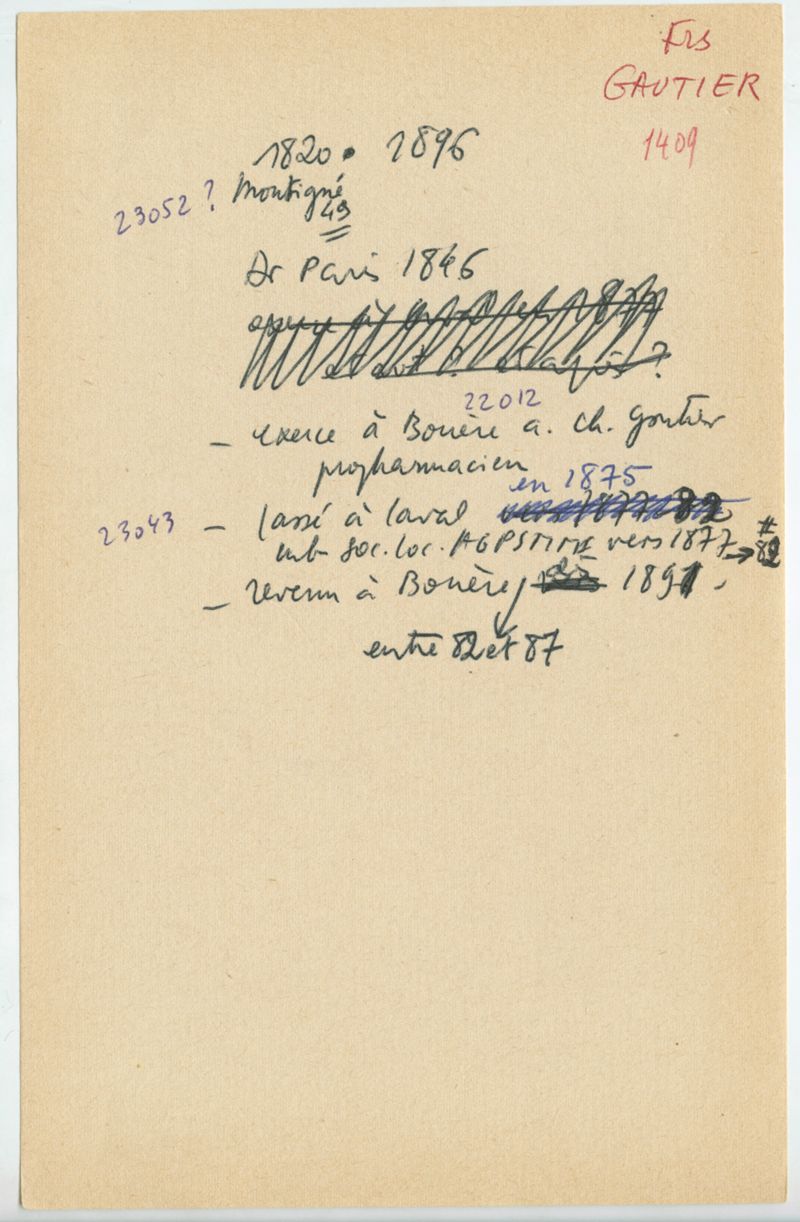 Frs
GAUTIER
1409
1820 • 1896
23052 ? Montigné
49
Dr Paris 1846
22012
– exerce à Bouère a. ch. Gautier
propharmacien
en 1875
23043 – passé à Laval
mb soc. loc. AGPSMM vers 1877 → # 82
– revenu à Bouère, 1891.
entre 82 et 87